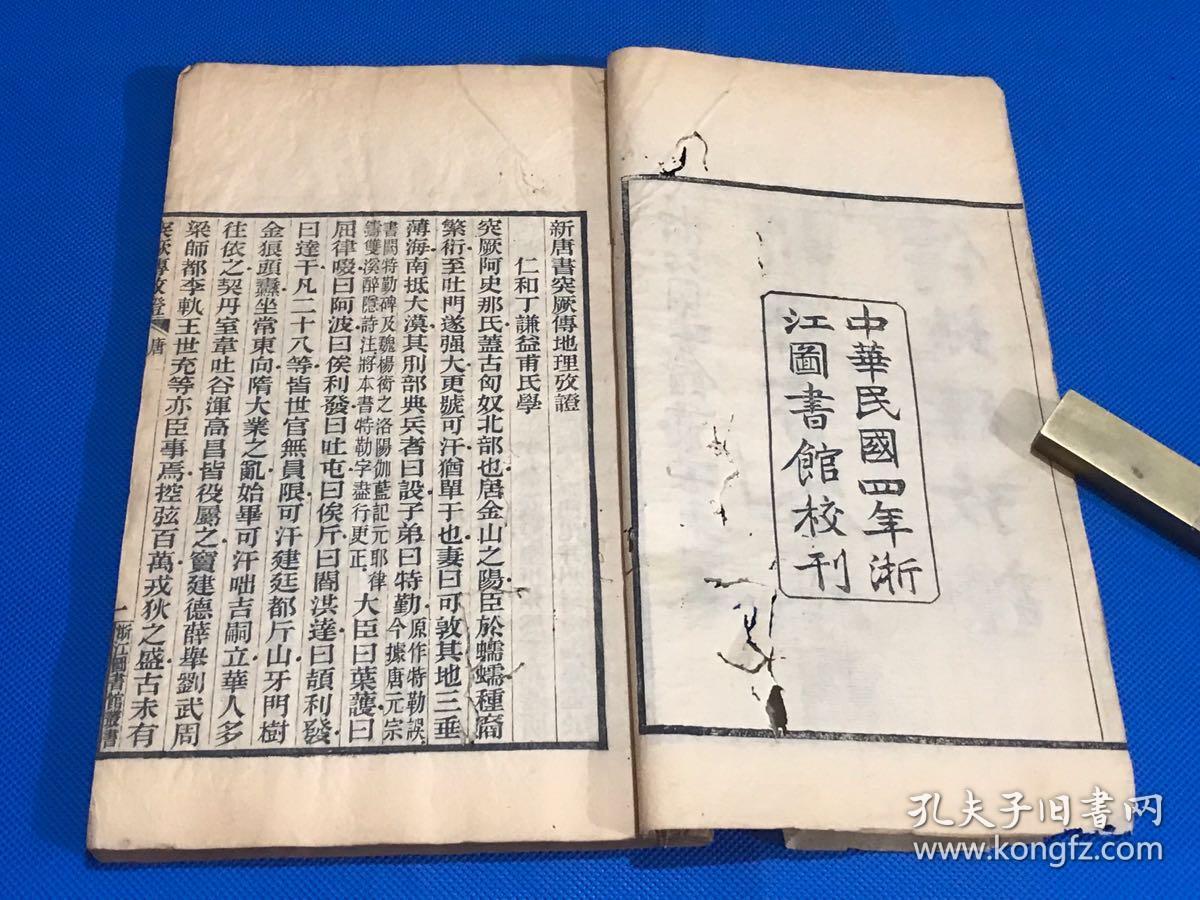 中華民國四年浙
江圖書館校刊
新唐書突厥傳地理攷證
仁和丁謙益甫氏學
突厥阿史那氏蓋古匈奴北部也居金山之陽臣於蠕蠕種裔
繁衍至吐門遂强大更號可汗猶單于也妻曰可敦其地三垂
薄海南抵大漠其別部典兵者曰設子弟曰特勤原作特勒誤今據唐元宗
書闕特勤碑及魏楊衒之洛陽伽藍記元耶律
鑄雙溪醉隱詩注將本書特勒字盡行更正大臣曰葉護曰
屈律啜曰阿波曰俟利發曰吐屯曰俟斤曰閻洪達曰頡利發
曰達干凡二十八等皆世官無員限可汗建廷都斤山牙門樹
金狼頭纛坐常東向隋大業之亂始畢可汗咄吉嗣立華人多
往依之契丹室韋吐谷渾高昌皆役屬之竇建德薛舉劉武周
梁師都李軌王世充等亦臣事焉控弦百萬戎狄之盛古未有
突厥傳攷證 唐 一 浙江圖書館叢書
孔夫子旧书网
www.kongfz.com